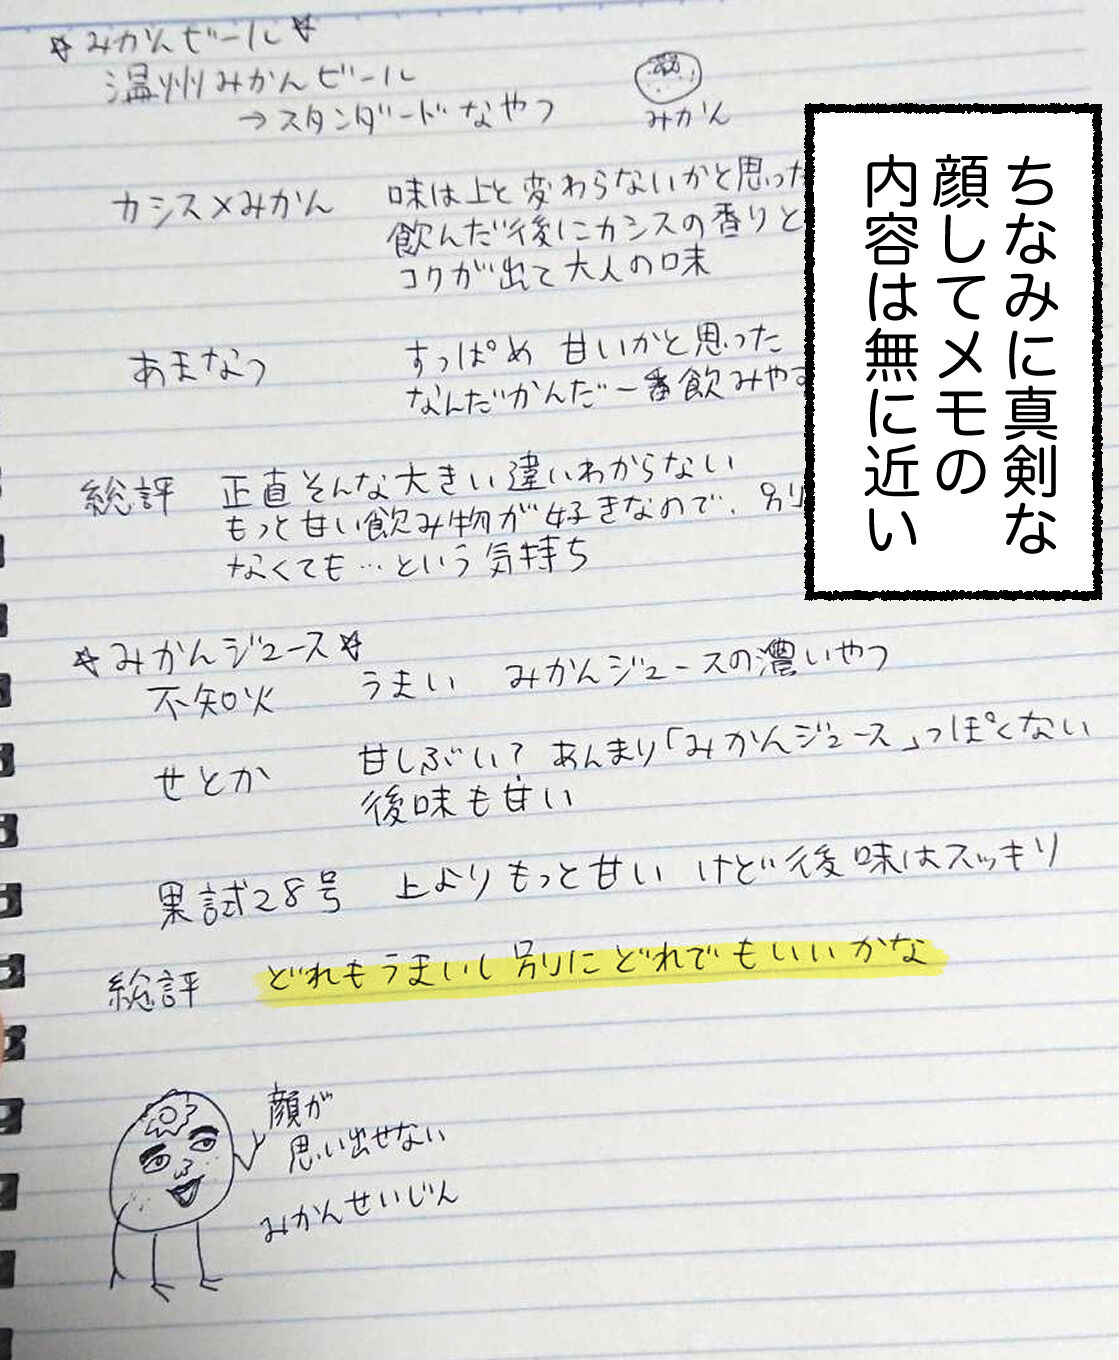 ☆みかんビール☆
温州みかんビール
→スタンダードなやつ
みかん
カシス×みかん
味は上と変わらないかと思った
飲んだ後にカシスの香りと
コクが出て大人の味
あまなつ
すっぱめ 甘いかと思った
なんだかんだ一番飲みやす
総評 正直そんな大きい違いわからない
もっと甘い飲み物が好きなので、別
なくても…という気持ち
ちなみに真剣な
顔してメモの
内容は無に近い
☆みかんジュース☆
不知火 うまい みかんジュースの濃いやつ
せとか 甘しぶい? あんまり「みかんジュース」っぽくない
後味も甘い
果試28号 上よりもっと甘い けど後味はスッキリ
総評 どれもうまいし別にどれでもいいかな
顔が
思い出せない
みかんせいじん